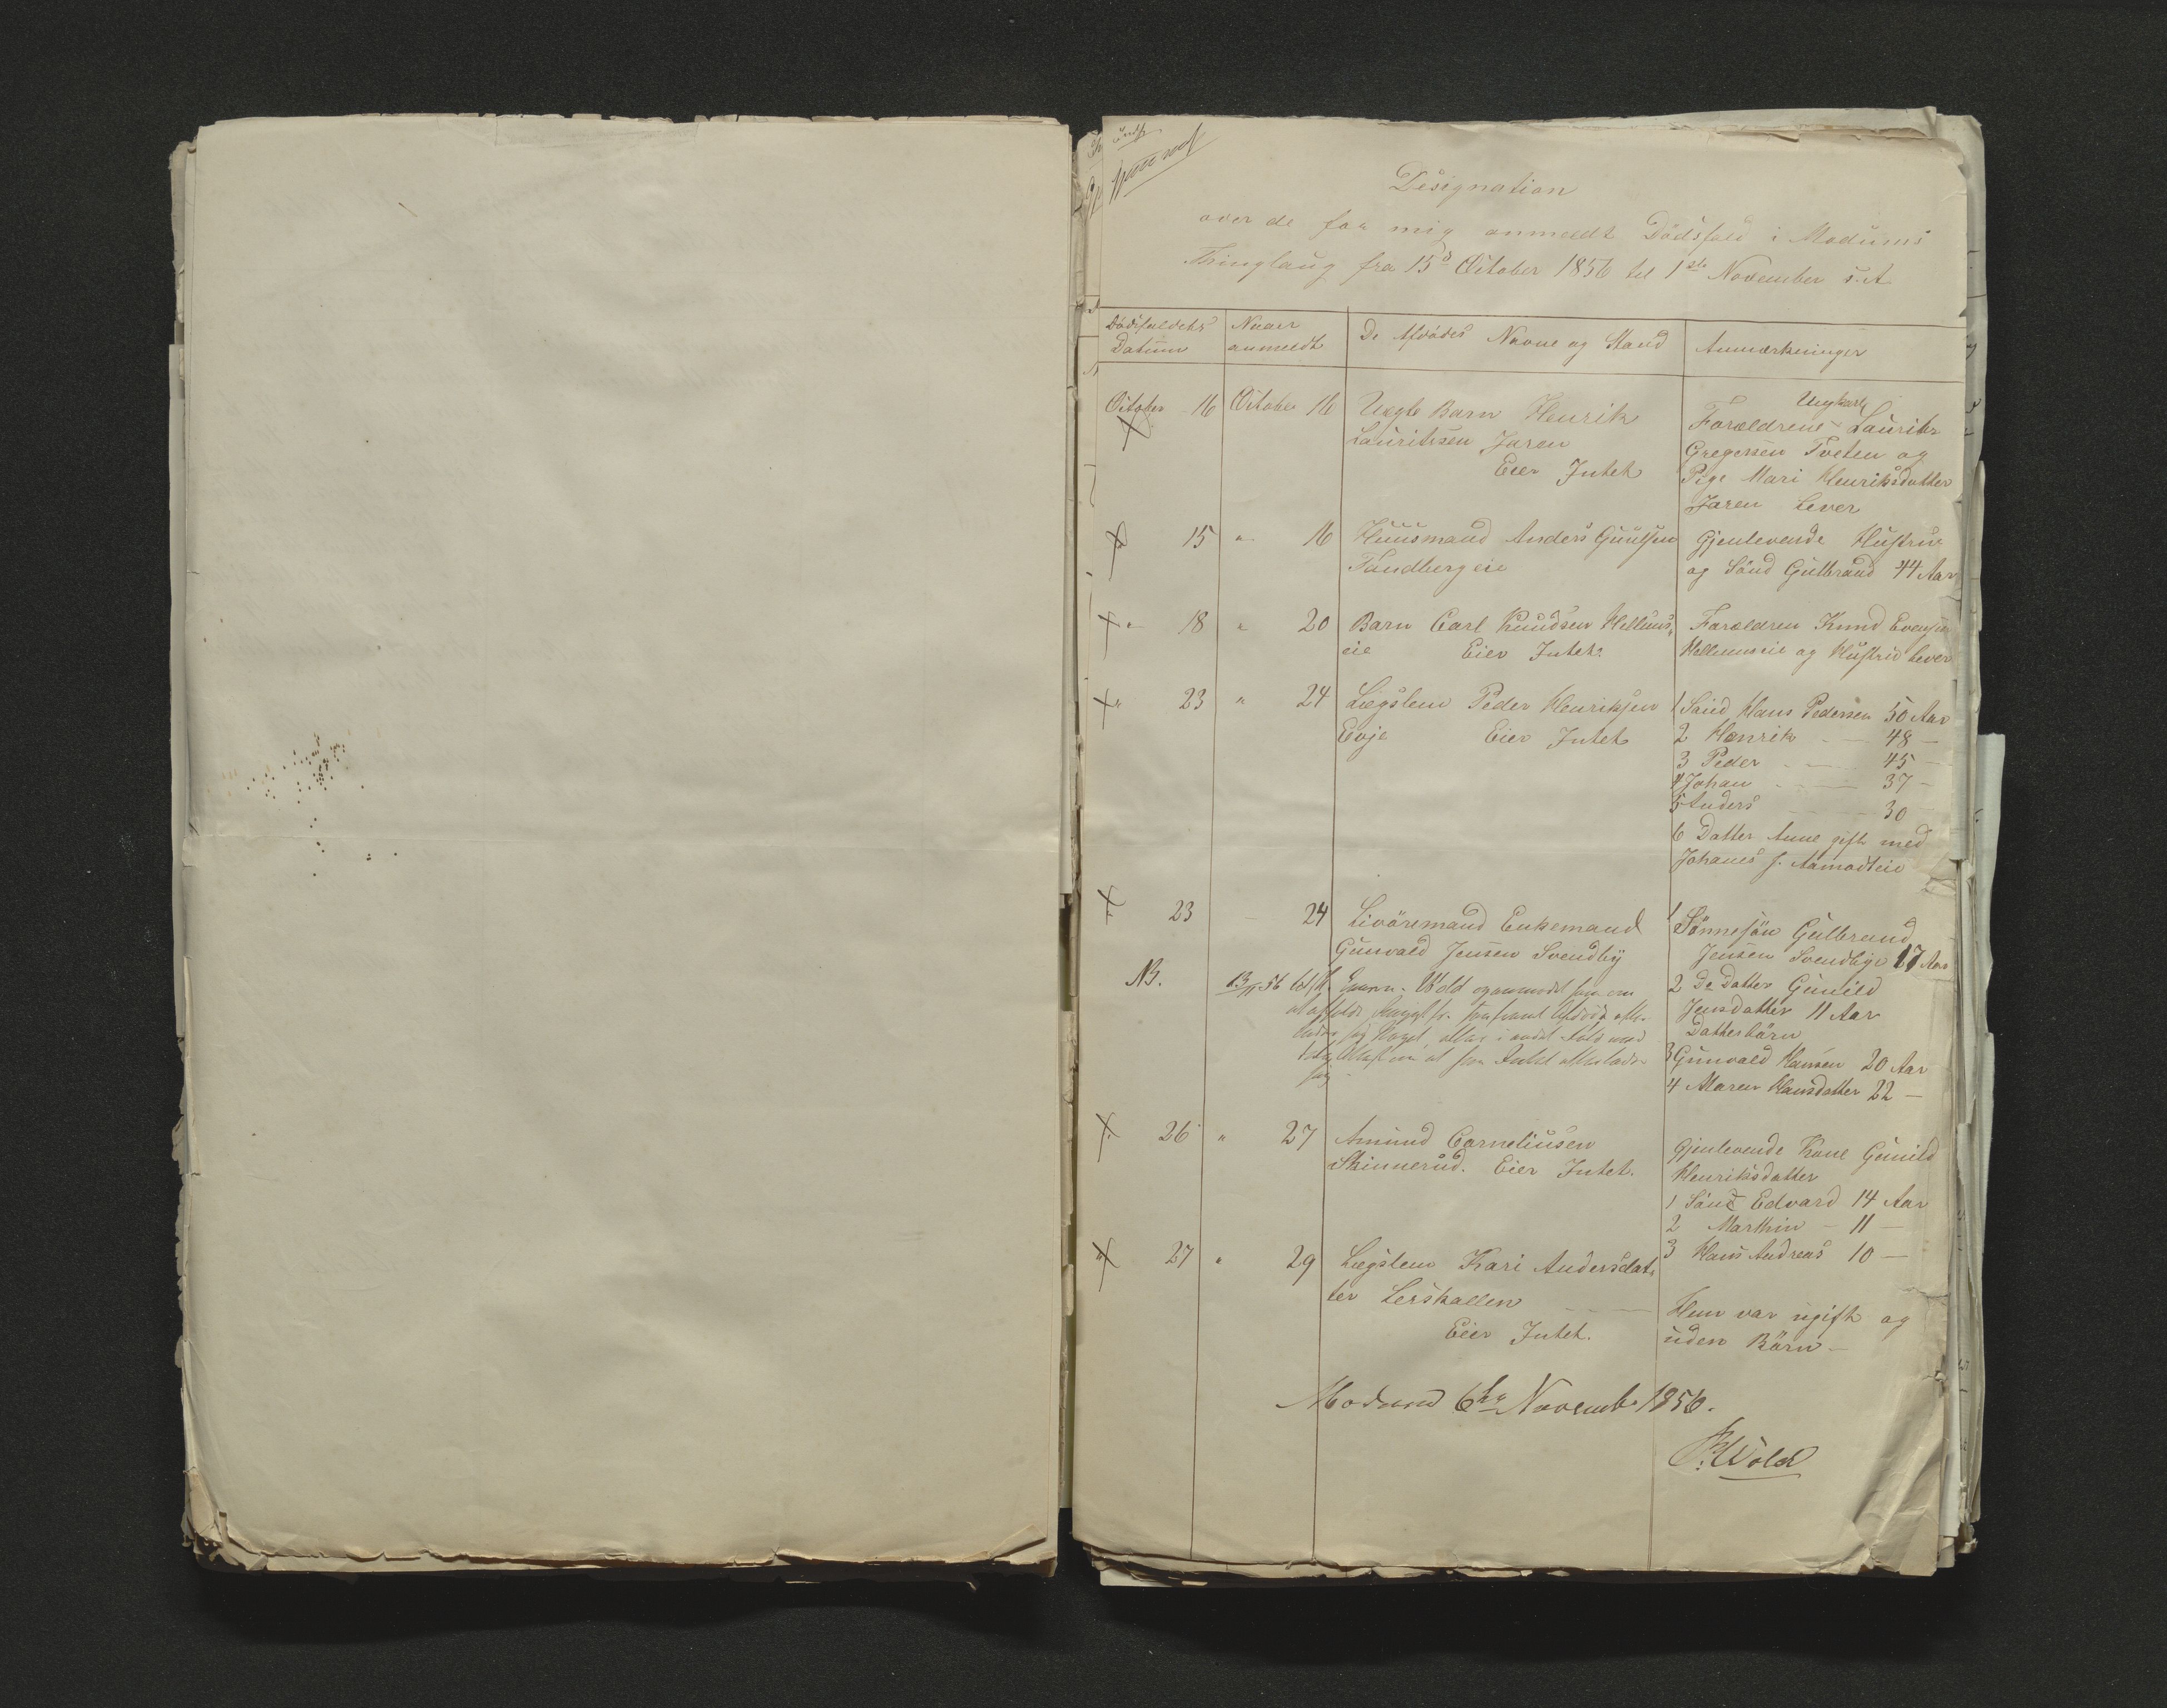 Designation
over de for mig anmeldt Dödsfald i Modums
Thinglaug fra 15d October 1856 til 1ste November s.A
Dödsfaldets Datum
Naar anmeldt
De Afdödes Navne og Stand
Anmærkninger
October 16 October 16 Uægte Barn Henrik
Lauritzsen Jaren
Eier Intet
Ungkarl
Forældrene Lauritz
Gregersen Tveten og
Pige Mari Henriksdatter
Jaren lever
15 " 16 Huusmand Anders Guulsen
Tandberg eie
Gjenlevende Hustrue
og Sönd Gulbrand 44 Aar
" 18 " 20 Barn Carl Knudsen Hellums
eie Eier Intet.
Forældren Knud Evensen
Hellumseie og Hustrue lever
" 23 " 24 Lægslem Peder Henriksen
Evje Eier Intet
1 Sönd Hans Pedersen 50 Aar
2 Henrik — 48 —
3 Peder — 45 —
4 Johan — 37 —
5 Anders 30
6 Datter Anne gift med
Johanes J. Aamodteie
23 24 Livöresmand Enkemand
Gunvald Jensen Svendby
1 Sönnesön Gulbrand
Jensen Svendbye 17 Aar
2 De Datter Gunild
Jensdatter 11 Aar
Datterbörn
3 Gunvald Hansen 20 Aar
4 Maren Hansdatter 22 —
NB. 13/11 56
Wold
Intet
26 " 27 Amund Corneliusen
Skinnerud. Eier Intet.
Gjenlevende Kone Gunild
Henriksdatter
1 Sönd Edvard 14 Aar
2 Marthin — 11 —
3 Hans Andreas 10 —
" 27 " 29 Lægslem Kari Andersdat
ter Lerskallen
Eier Intet.
Hun var ugift og
uden Börn —
Modum 6te Novemb. 1856.
Wold